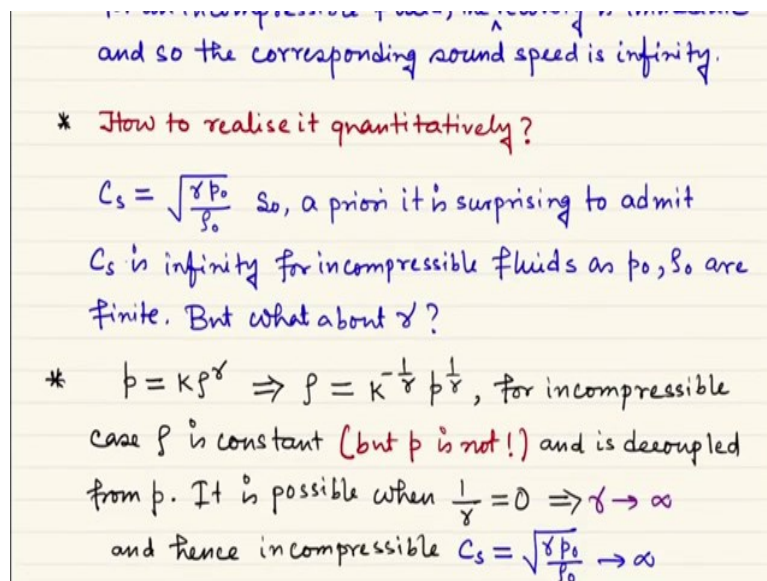 for an incompressible fluid, the is immediate
and so the corresponding sound speed is infinity.
* How to realise it quantitatively?
Cₛ = √(γp₀/ρ₀) So, a priori it is surprising to admit
Cₛ is infinity for incompressible fluids as p₀, ρ₀ are
finite. But what about γ?
* p = Kρ^γ ⇒ ρ = K^(-1/γ) p^(1/γ), for incompressible
case ρ is constant (but p is not!) and is decoupled
from p. It is possible when 1/γ = 0 ⇒ γ → ∞
and hence incompressible Cₛ = √(γp₀/ρ₀) → ∞